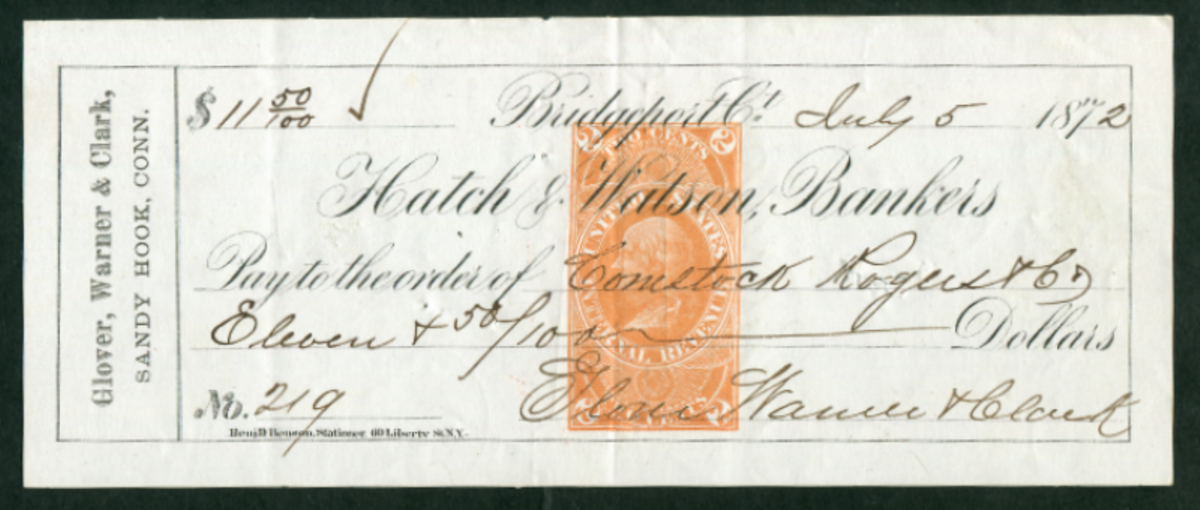 Glover, Warner & Clark,
SANDY HOOK, CONN.
$ 11 50/100
Bridgeport Ct. July 5 1872
2 TWO CENTS 2
Hatch & Watson, Bankers
UNITED STATES
INTERNAL REVENUE
Pay to the order of Comstock Rogers & Co
Eleven & 50/100 Dollars
No. 219
Glover Warner & Clark
Benj. D Benson, Stationer, 60 Liberty St. N.Y.